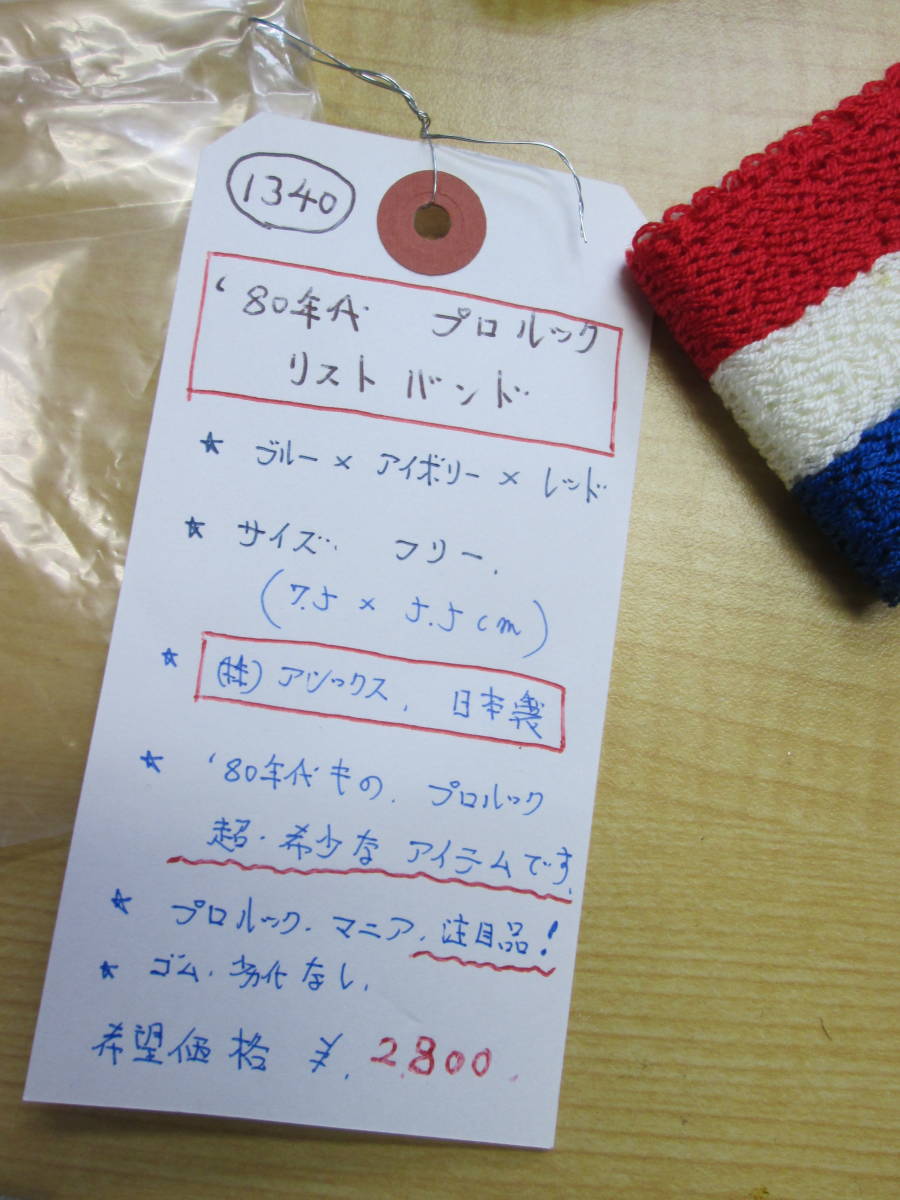 1340
'80年代 プロルック
リストバンド
★ ブルー × アイボリー × レッド
★ サイズ. フリー.
(7.5 × 5.5cm)
★ (株) アシックス. 日本製
★ '80年代もの. プロルック
超・希少なアイテムです.
★ プロルック. マニア. 注目品!
★ ゴム. 劣化なし.
希望価格 ¥. 2.800.